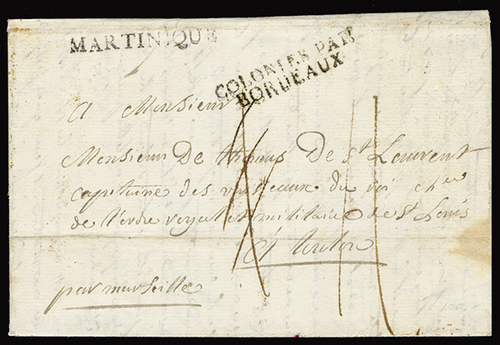 MARTINIQUE
COLONIES PAR
BORDEAUX
A Monsieur
Monsieur De thomas De St Laurent
capitaine des vaisseaux du roi cher
de l'ordre royal et militaire de St Louis
A Toulon
par marseille